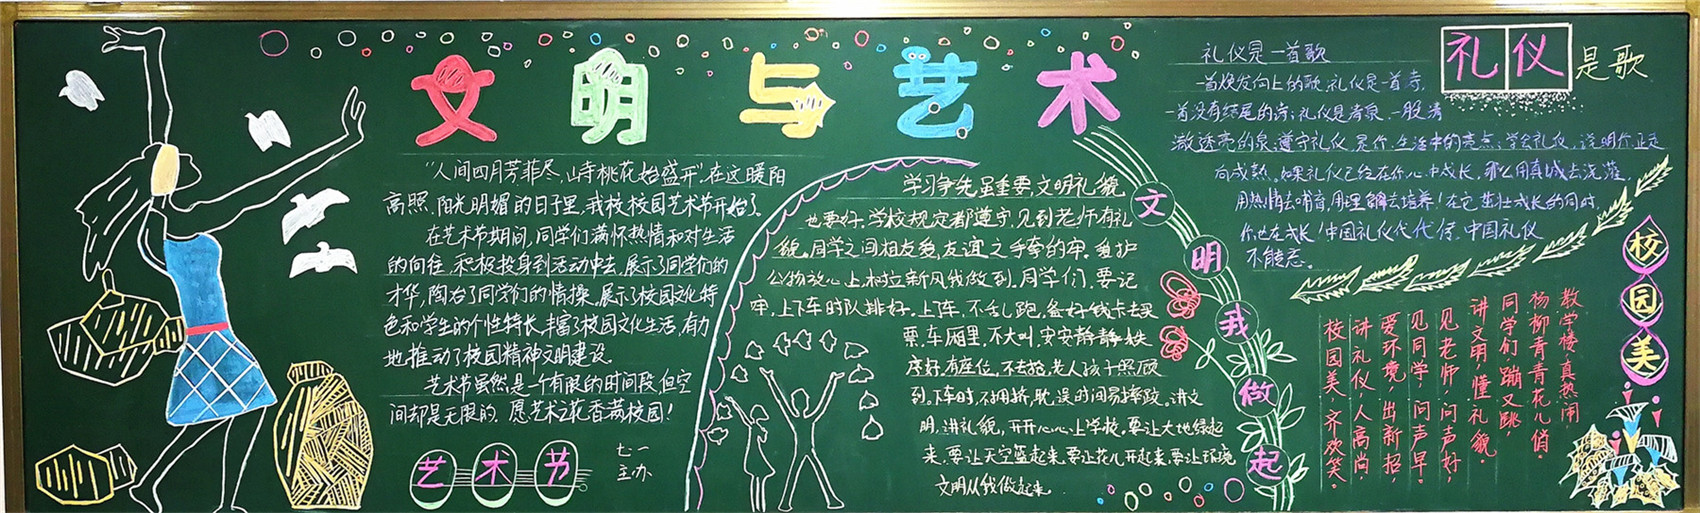 文明与艺术
“人间四月芳菲尽，山寺桃花始盛开。在这暖阳
高照、阳光明媚的日子里，我校校园艺术节开始了。
在艺术节期间，同学们满怀热情和对生活
的向往，积极投身到活动中去，展示了同学们的
才华，陶冶了同学们的情操，展示了校园文化特
色和学生的个性特长，丰富了校园文化生活，有力
地推动了校园精神文明建设。
艺术节虽然是一个有限的时间段，但空
间却是无限的。愿艺术之花香满校园！
艺术节
七一
主办
学习争先虽重要，文明礼貌
也要好。学校规定都遵守，见到老师有礼
貌。同学之间相友爱，友谊之手牵的牢。爱护
公物放心上，树立新风我做到。同学们，要记
牢，上下车时队排好。上车，不乱跑，备好钱卡去买
票，车厢里，不大叫，安安静静秩
序好。有座位，不去抢，老人孩子照顾
到。下车时，不拥挤，耽误时间易摔跤。讲文
明，讲礼貌，开开心心上学校。要让大地绿起
来，要让天空蓝起来，要让花儿开起来，要让环境
文明从我做起来。
文明我做起
礼仪是歌
礼仪是一首歌
一首焕发向上的歌，礼仪是一首诗，
一首没有结尾的诗；礼仪是清泉，一股清
澈透亮的泉。遵守礼仪，是你生活中的亮点；学会礼仪，说明你正走
向成熟。如果礼仪已经在你心中成长，那么用真诚去浇灌，
用热情去哺育，用理解去培养！在它茁壮成长的同时，
你也在成长！中国礼仪代代传，中国礼仪
不能忘。
校园美
教学楼，真热闹，
杨柳青青花儿俏。
同学们，蹦又跳，
讲文明，懂礼貌。
见老师，问声好，
见同学，问声早。
爱环境，出新招，
讲礼仪，人高尚，
校园美，齐欢笑。